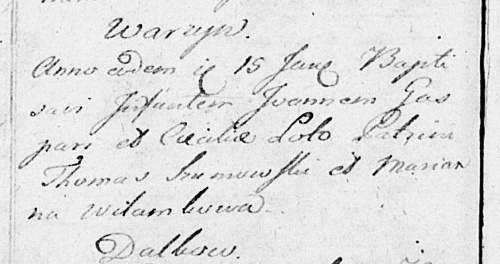 Warzyn.
Anno eodem 15 Janu Bapti
savi Infantem Joannem Gas
pari et Cæciliæ Loto Patrini
Thomas Szumowski et Marian
na Witamkowa
Dalbow.